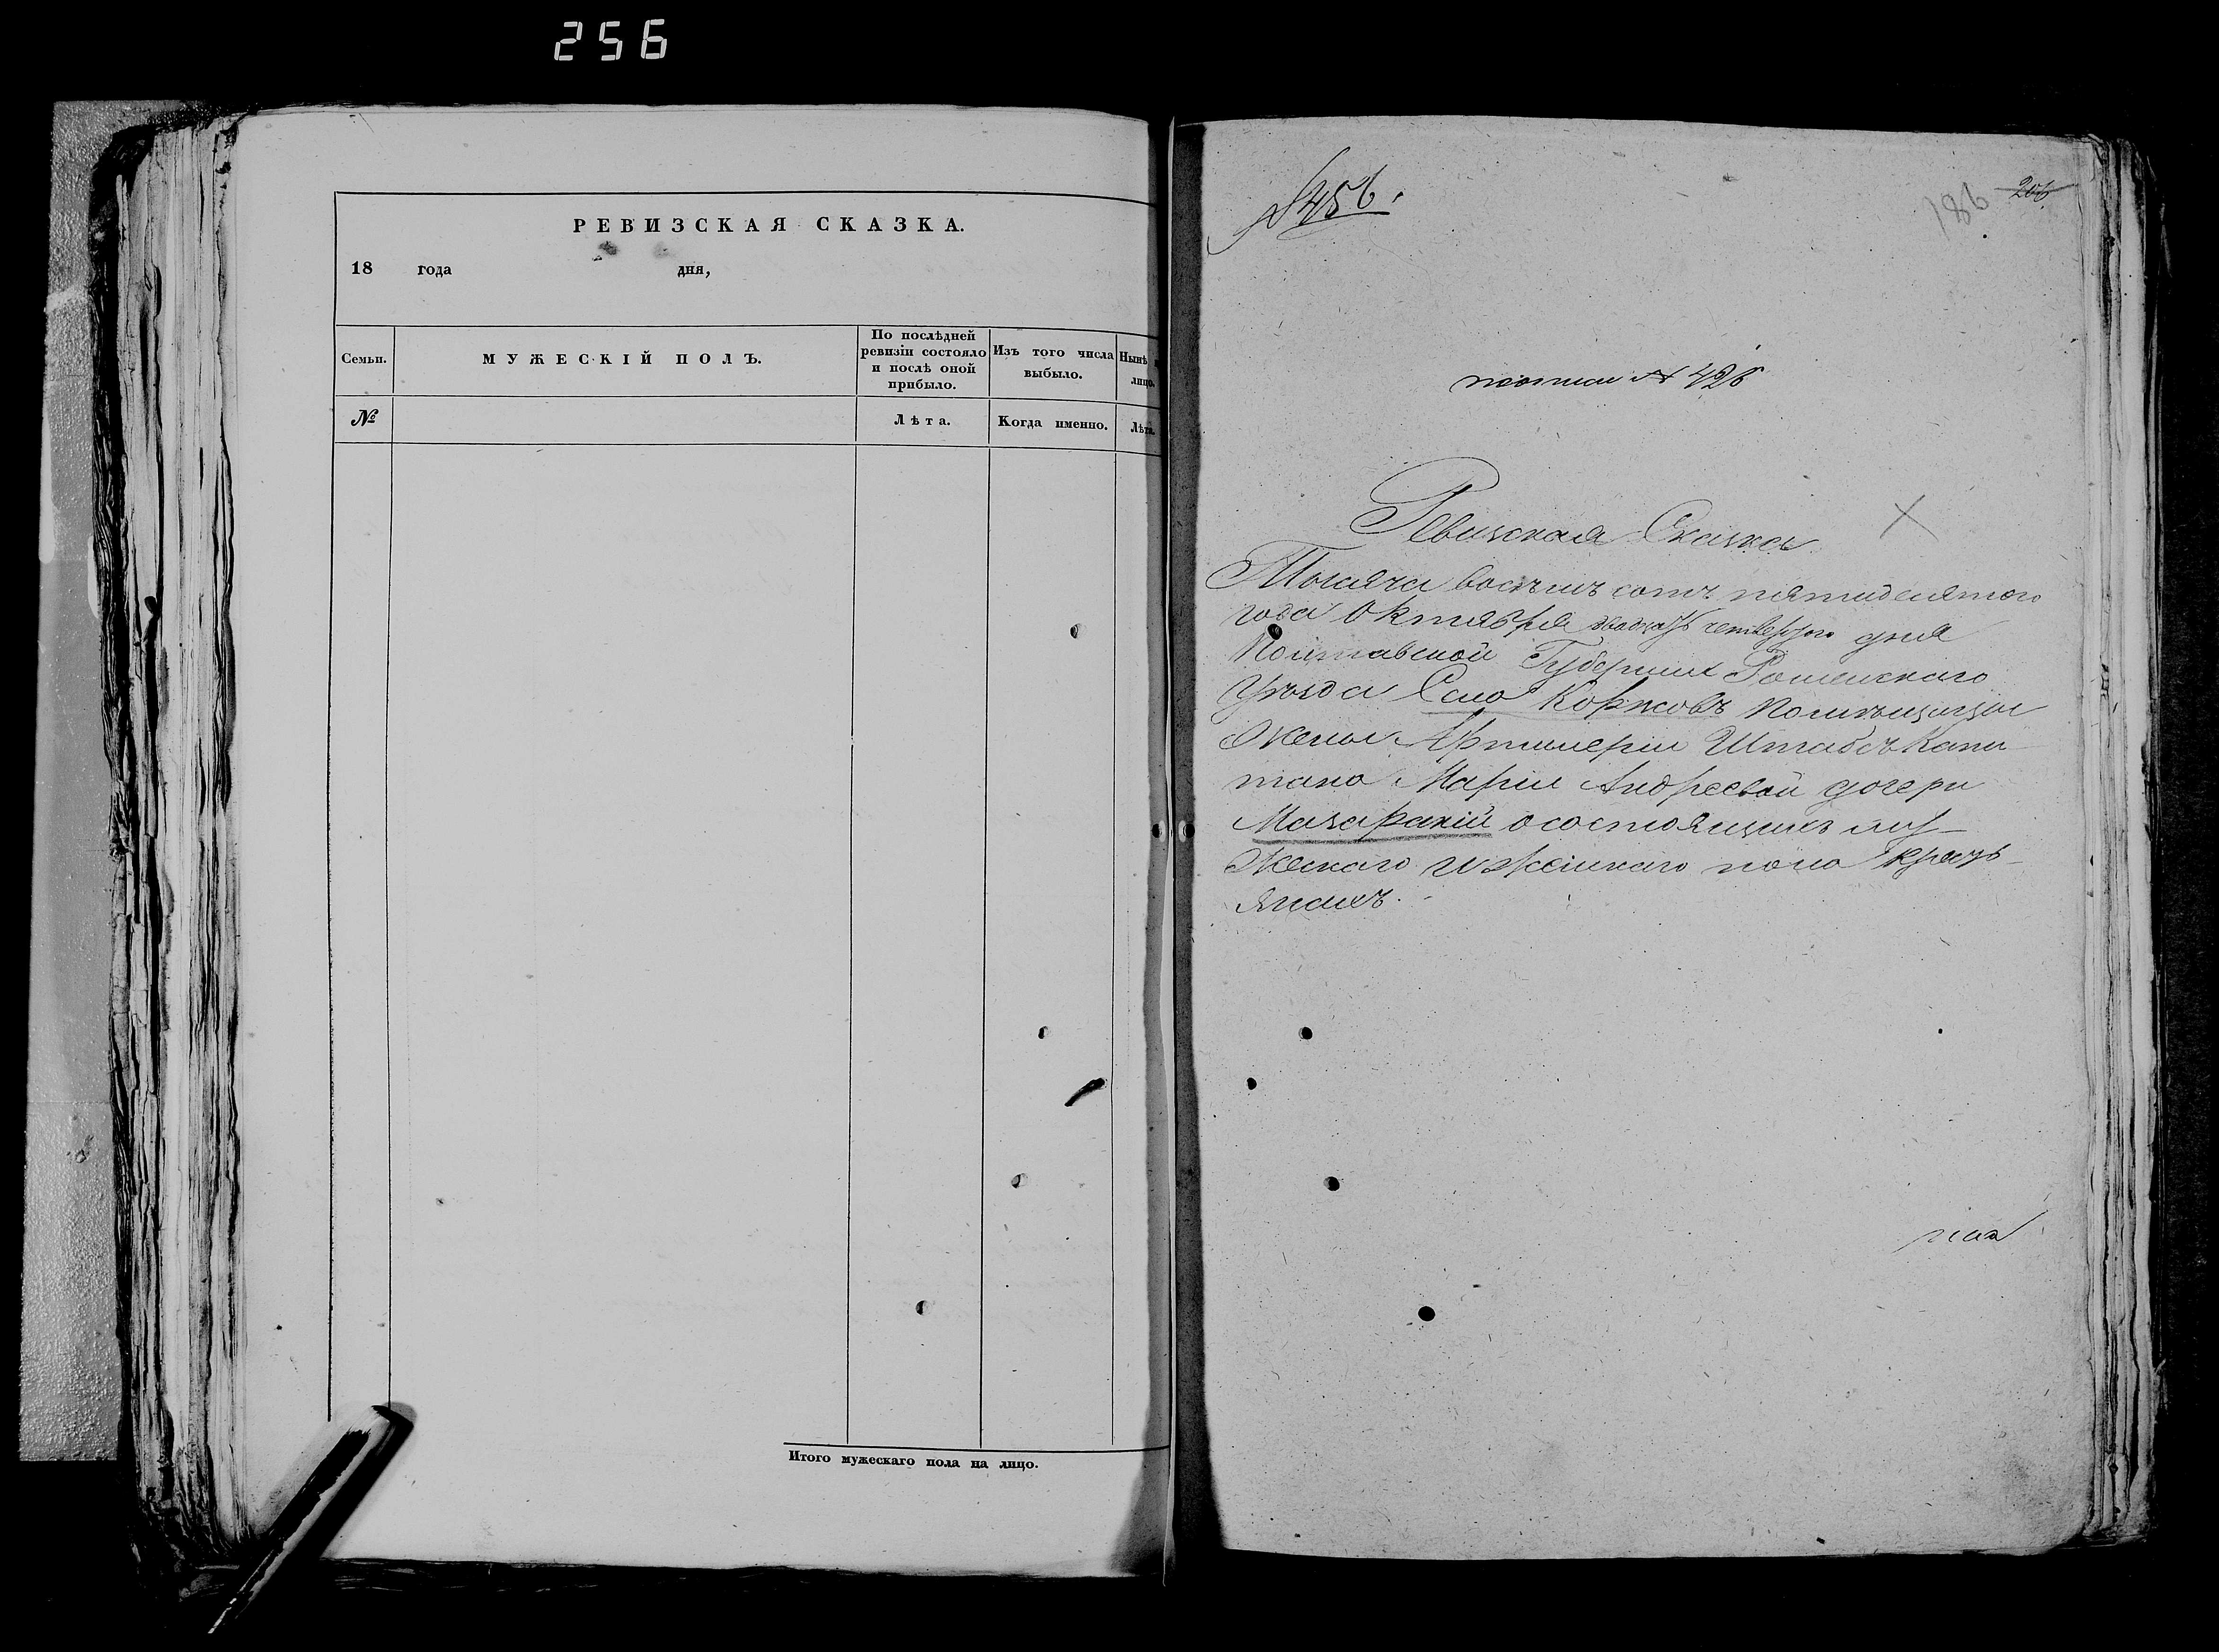 256
РЕВИЗСКАЯ СКАЗКА.
18 года дня,
Семьи.
МУЖЕСКІЙ ПОЛЪ.
По послѣдней
ревизіи состояло
и послѣ оной
прибыло.
Изъ того числа
выбыло.
Нынѣ
лицо.
№
Лѣта.
Когда именно.
Лѣта.
Итого мужескаго пола на лицо.
№ 456.
186 206
№ 426
Ревизская Сказка
Тысяча восемь сотъ пятидесятого
года Октября двадцать четвертого дня
Полтавской Губерніи Роменскаго
Уѣзда Село Коржовъ Помѣщицы
Жены Артилеріи Штабсъ Капи
тана Маріи Андреевой дочери
Мазаракій о состоящихъ му_
жескаго и женскаго пола крезть_
янахъ.